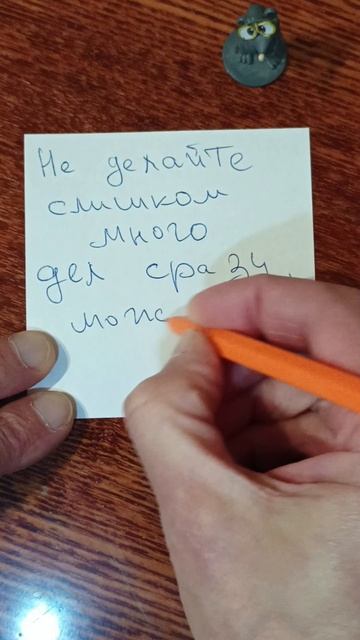 Не делайте
слишком
много
дел сразу,